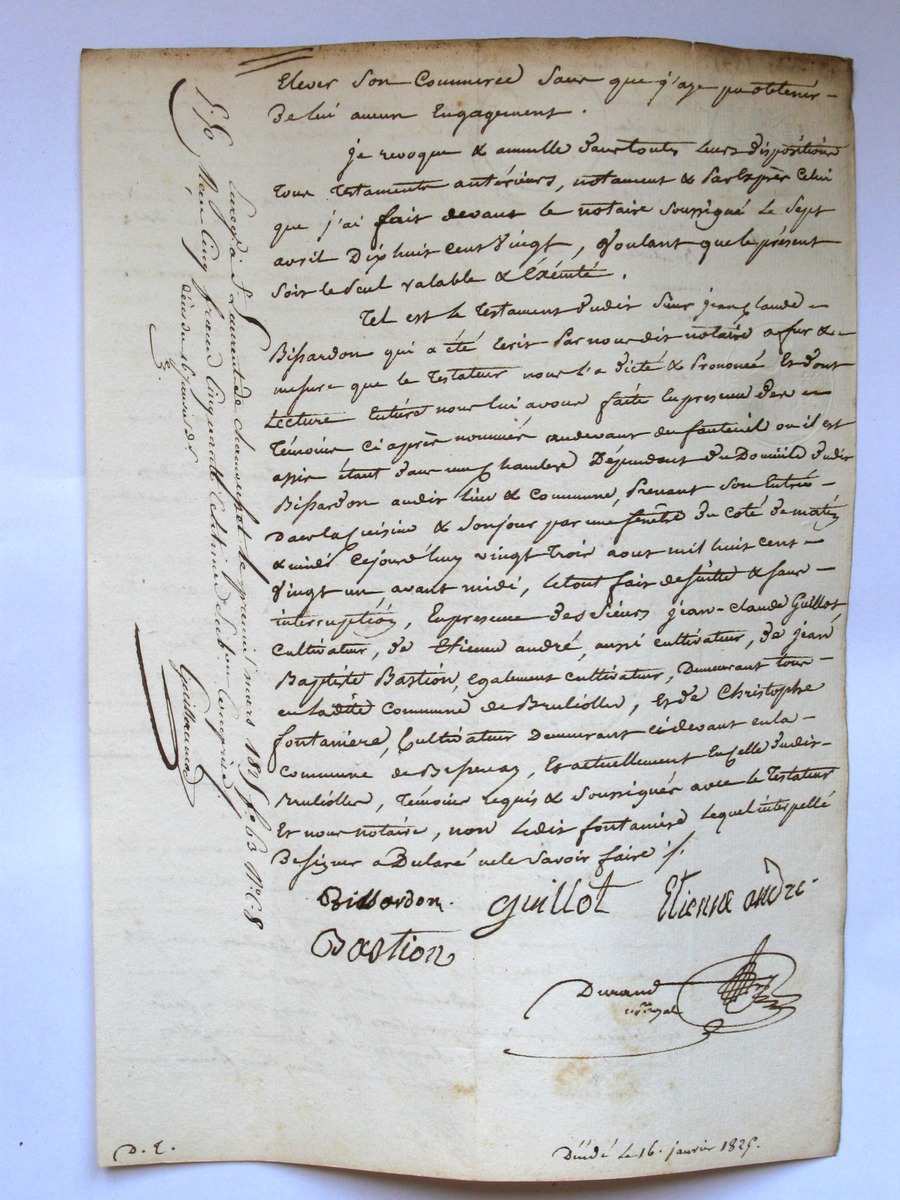 Elever Son Commerce Sans que j'aye pu obtenir
De lui aucun Engagement.
je revoque & annulle dans toutes leurs dispositions
tous testaments antérieurs, notament & Par Exprès Celui
que j'ai fait devant le notaire Soussigné le Sept
avril Dix huit cent Vingt, Voulant que le présent
Soit le Seul valable & Exécuté.
Tel est le Testament dudit Sieur jean Claude
Bissardon qui a été Ecrit Par nous dit notaire a fur &
mesure que le Testateur nous l'a dicté & Prononcé Et dont
Lecture Entiére nous lui avons faite En presence des
Témoins Ci après nommés audevant du fauteuil ou il est
assis étant dans une Chambre Dépendant du Domicile dudit
Bissardon audit lieu & Commune, Prenant Son Entrée
Dans la Cuisine & Son jour par une fenêtre du Coté de matin
& midi Cejourd'huy vingt trois aout mil huit cent
Vingt un avant midi, le tout fait de Suite & Sans
interruption, En presence des Sieurs jean-Claude Guillot
Cultivateur, de Etienne andré, aussi Cultivateur, de jean
Baptiste Bastion, Egalement Cultivateur, Demeurant tous
en ladite Commune de Brulliolles, Et de Christophe
fontaniere, Cultivateur Demeurant ci devant en la
Commune de Bessenay, Et actuellement En Celle dudit
Brulliolles, Témoins requis & Soussignés avec le Testateur
Et nous notaire, non Ledit fontaniere Lequel interpellé
De Signer a Déclaré ne le Savoir faire ./.
Bissardon. Guillot Etienne andre
Bastion
Durand
nre royal
Enregé à St Laurent de chamousset le premier mars 1825 fo 63 Vo C. 8
Reçu Cinq francs Cinquante Centimes Subon Compris.
décédé le 16 janvier der
Guillaumat
D. E.
Décédé le 16. janvier 1825.